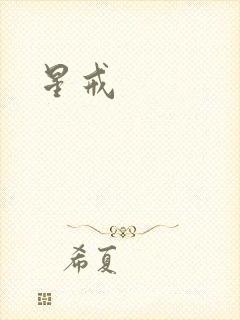 星戒
希夏